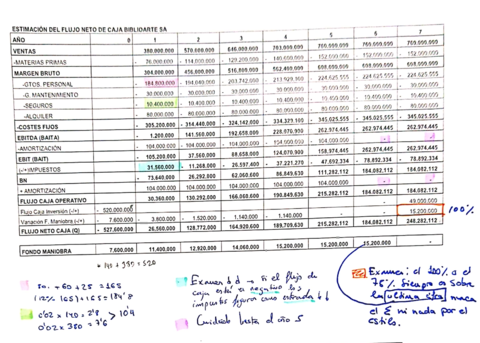 ESTIMACIÓN DEL FLUJO NETO DE CAJA BIBLIOARTE SA
AÑO 0 1 2 3 4 5 6 7
VENTAS 380.000.000 570.000.000 646.000.000 703.000.000 760.000.000 760.000.000 760.000.000
-MATERIAS PRIMAS - 76.000.000 - 114.000.000 - 129.200.000 - 140.600.000 - 152.000.000 - 152.000.000 - 152.000.000
MARGEN BRUTO 304.000.000 456.000.000 516.800.000 562.400.000 608.000.000 608.000.000 608.000.000
-GTOS. PERSONAL - 184.800.000 - 224.625.555 - 224.625.555 - 224.625.555
-G. MANTENIMIENTO - 30.000.000 - 30.000.000 - 30.000.000 - 30.000.000
-SEGUROS - 10.400.000 - 10.400.000 - 10.400.000 - 10.400.000
-ALQUILER - 80.000.000 - 80.000.000 - 80.000.000 - 80.000.000
-COSTES FIJOS - 305.200.000 - 314.440.000 - 324.142.000 - 334.329.100 - 345.025.555 - 345.025.555 - 345.025.555
EBITDA (BAITA) - 1.200.000 141.560.000 192.658.000 228.070.900 262.974.445 262.974.445 262.974.445
-AMORTIZACIÓN - 104.000.000 - 104.000.000 - 104.000.000 - 104.000.000 - 104.000.000
EBIT (BAIT) - 105.200.000 37.560.000 88.658.000 124.070.900 158.974.445 262.974.445 262.974.445
(-/+)IMPUESTOS 31.560.000 - 11.268.000 - 26.597.400 - 37.221.270 - 47.692.334 - 78.892.334 - 78.892.334
BN - 73.640.000 26.292.000 62.060.600 86.849.630 111.282.112 184.082.112 184.082.112
+ AMORTIZACIÓN 104.000.000 104.000.000 104.000.000 104.000.000 104.000.000
FLUJO CAJA OPERATIVO 30.360.000 130.292.000 166.060.600 190.849.630 215.282.112 184.082.112 184.082.112
Flujo Caja Inversión (-/+) - 520.000.000 49.000.000
Variación F. Maniobra (-/+) - 7.600.000 - 3.800.000 - 1.520.000 - 1.140.000 - 1.140.000 15.200.000 100%
FLUJO NETO CAJA (Q) - 527.600.000 26.560.000 128.772.000 164.920.600 189.709.630 215.282.112 184.082.112 248.282.112
FONDO MANIOBRA 7.600.000 11.400.000 12.920.000 14.060.000 15.200.000 15.200.000 15.200.000
+ 60 + 25 = 165
(12% 165) + 165 = 184'8
0'02 x 140 = 2'8
0'02 x 380 = 7'6 > 10'4
Examen → si el flujo de
caja está en negativo los
impuestos figuran como entrada
Cuidado hasta el año 5
Examen: el 100% o el
75% siempre es sobre
la última cifra nunca
el Σ ni nada por el
estilo.